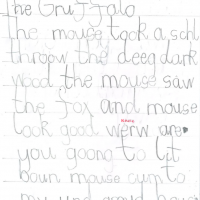 the Gruffalo
the mouse took a schl
throow the deeg dark
wood the mouse saw
the fox and mouse
look good werw are
where
you goong to lit
boun mouse cum to
my und